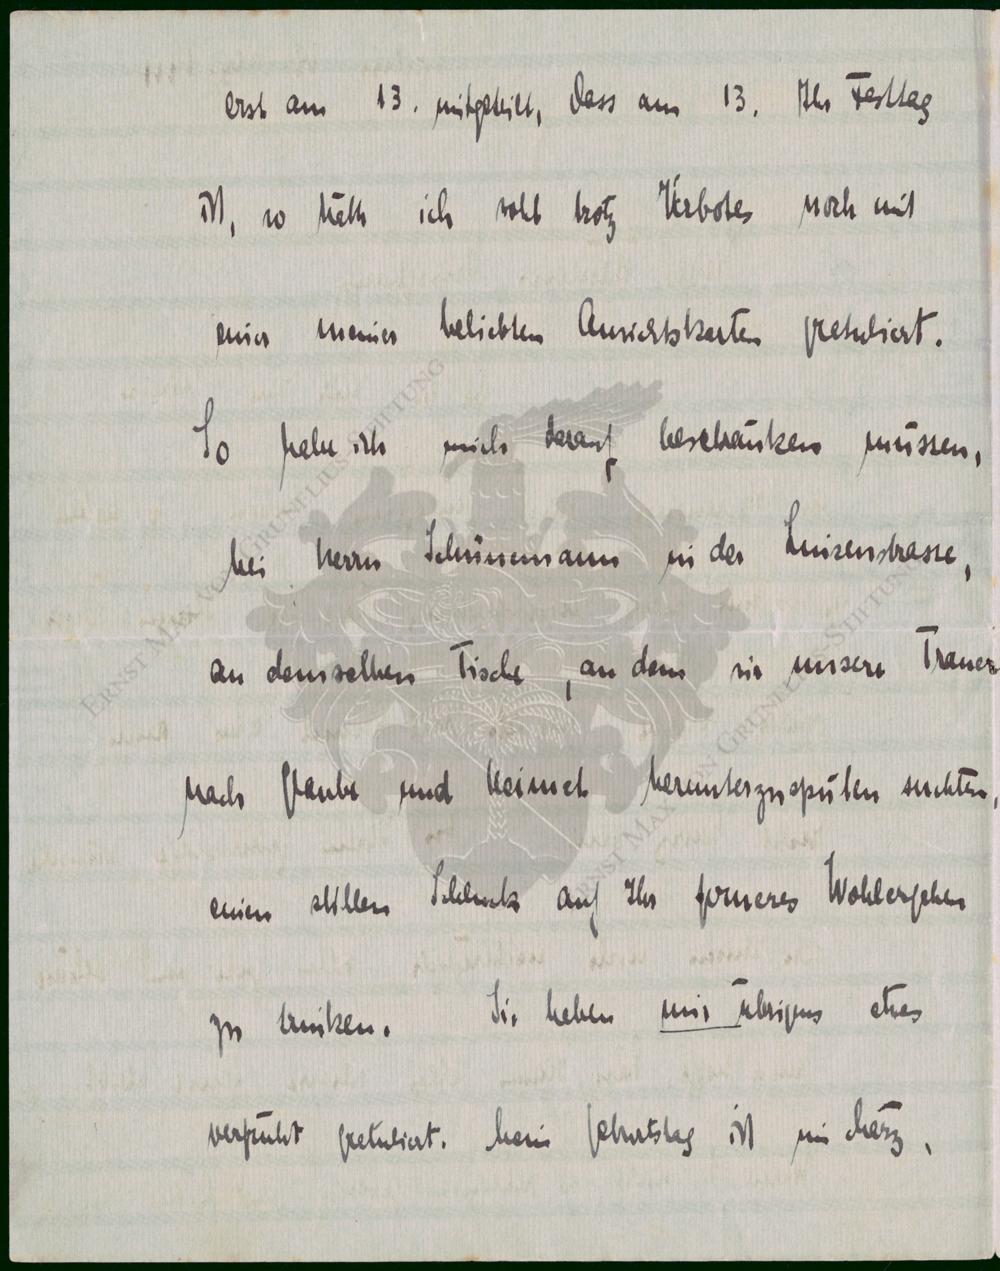 erst am 13. mitgeteilt, dass am 13. Ihr Festtag
ist, so hätte ich wohl trotz Verbotes noch mit
einer meiner beliebten Ansichtskarten gratuliert.
So habe ich mich darauf beschränken müssen,
bei Herrn Schünemann in der Luisenstrasse,
an demselben Tische, an dem wir unsere Trauer
nach Glaube und Heimat herunterzuspülen suchten,
einen stillen Schluck auf Ihr ferneres Wohlergehen
zu trinken. Sie haben mir übrigens etwas
verfrüht gratuliert. Mein Geburtstag ist im März,
ERNST MAX VON GRUNELIUS-STIFTUNG
ERNST MAX VON GRUNELIUS-STIFTUNG